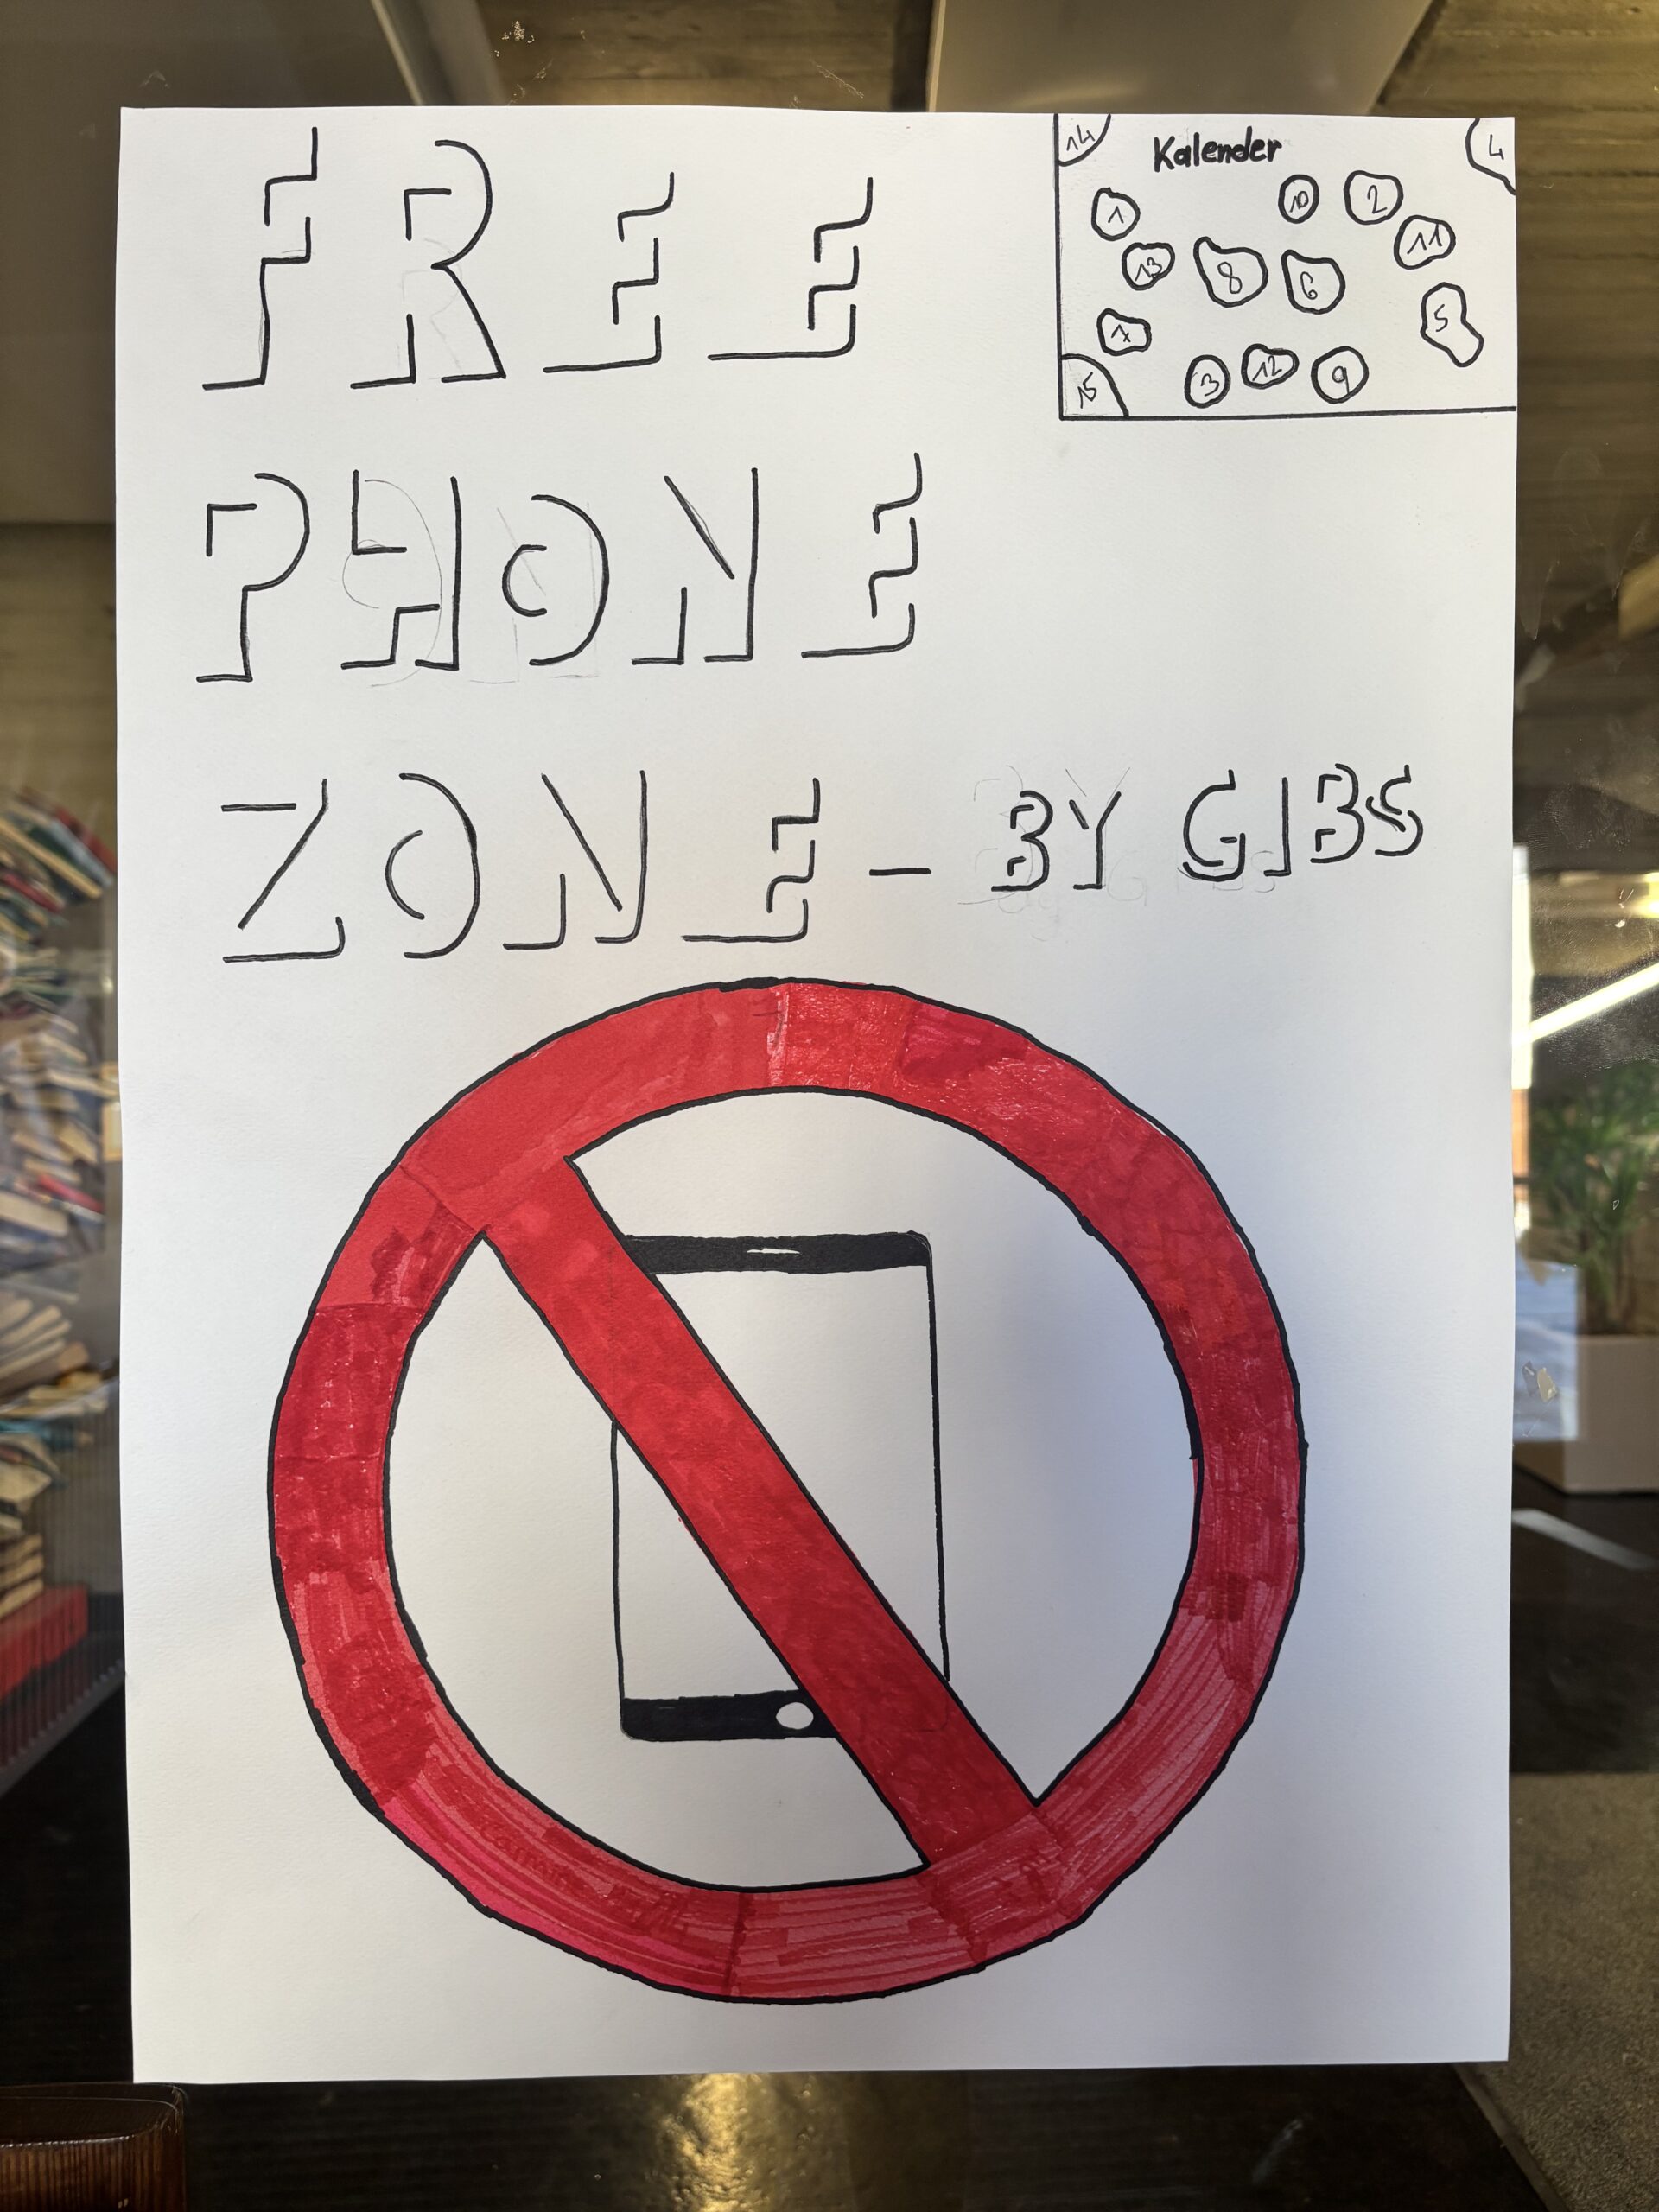 FREE
PHONE
ZONE - BY GIBS
Kalender
14
4
1
10
2
11
13
8
6
5
7
3
12
9
15